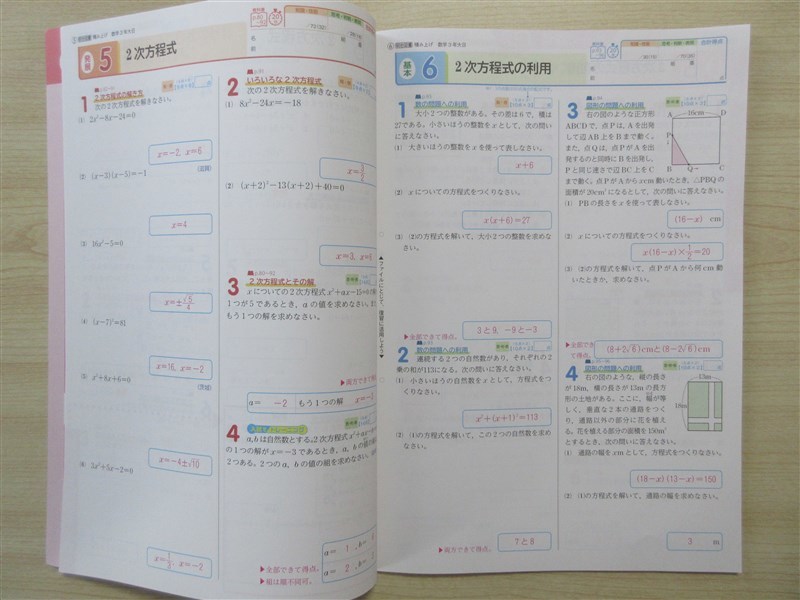 発展
5
2次方程式
名
前
組
番
1
2次方程式の解き方
次の2次方程式を解きなさい。
(1) 2x²−8x−24=0
x=−2, x=6
(2) (x−3)(x−5)=−1
x=4
(3) 16x²−5=0
x=±√5/4
(4) (x−7)²=81
x=16, x=−2
(5) x²+8x+6=0
x=−4±√10
(6) 3x²+5x−2=0
x=1/3, x=−2
2
いろいろな2次方程式
次の2次方程式を解きなさい。
(1) 8x²−24x=−18
(2) (x+2)²−13(x+2)+40=0
x=3, x=6
3
2次方程式とその解
1つが5であるとき、aの値を求めなさい。
もう1つの解を求めなさい。
▶両方
a= −2 もう1つの解
4
a, bは自然数とする。2次方程式
の1つの解がx=−3であるとき、a, bの値の
2つある。2つのa, bの値の組を求めなさい。
▶全部できて得点。
▶組は順不同可。
a= 1 , b=
a= 2 , b=
▲ファイルにとじて、復習に活用しよう▼
基本
6
2次方程式の利用
合計得点
名
前
組
番
1
数の問題への利用
大小2つの整数がある。その差は6で、積は
27である。小さいほうの整数をxとして、次の問い
に答えなさい。
(1) 大きいほうの整数をxを使って表しなさい。
x+6
(2) xについての方程式をつくりなさい。
x(x+6)=27
(3) (2)の方程式を解いて、大小2つの整数を求めな
さい。
▶全部できて得点。
3と9, −9と−3
2
数の問題への利用
連続する2つの自然数があり、それぞれの2
乗の和が113になる。次の問いに答えなさい。
(1) 小さいほうの自然数をxとして、方程式をつ
くりなさい。
x²+(x+1)²=113
(2) (1)の方程式を解いて、この2つの自然数を求め
なさい。
▶両方できて得点。
7と8
3
図形の問題への利用
右の図のような正方形
ABCDで、点Pは、Aを出発
して辺AB上をBまで動く。ま
た、点Qは、点PがAを出
発するのと同時にBを出発し、
Pと同じ速さで辺BC上をC
まで動く。点PがAからxcm動いたとき、△PBQの
面積が20cm²になるとして、次の問いに答えなさい。
A
16cm
D
P
B
Q
C
(1) PBの長さをxを使って表しなさい。
(16−x) cm
(2) xについての方程式をつくりなさい。
x(16−x)×1/2=20
(3) (2)の方程式を解いて、点PがAから何cm動
いたときか、求めなさい。
▶全部でき
て得点。
(8+2√6)cmと(8−2√6)cm
4
図形の問題への利用
右の図のような、縦の長さ
が18m、横の長さが13mの長方
形の土地がある。ここに、幅が等
しく、垂直な2本の道路をつく
り、道路以外の部分に花を植え
る。花を植える部分の面積を150m²
とするとき、次の問いに答えなさい。
13m
18m
(1) 道路の幅をxmとして、方程式をつくりなさい。
(18−x)(13−x)=150
(2) (1)の方程式を解いて、道路の幅を求めなさい。
3 m